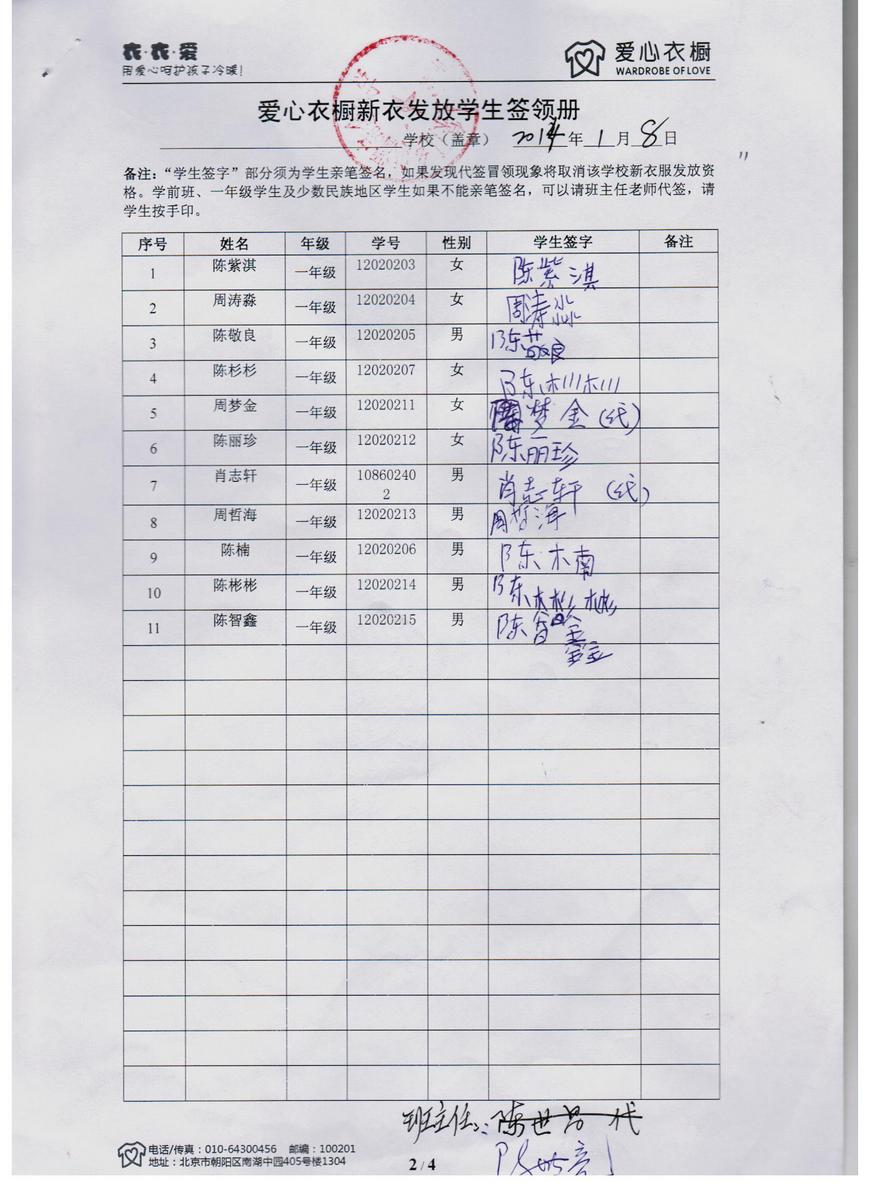 衣·衣·爱
用爱心呵护孩子冷暖!
爱心衣橱
WARDROBE OF LOVE
爱心衣橱新衣发放学生签领册
学校（盖章） 2014年 1月 8日
备注：“学生签字”部分须为学生亲笔签名，如果发现代签冒领现象将取消该学校新衣服发放资
格。学前班、一年级学生及少数民族地区学生如果不能亲笔签名，可以请班主任老师代签，请
学生按手印。
序号 姓名 年级 学号 性别 学生签字 备注
1 陈紫淇 一年级 12020203 女 陈紫淇
2 周涛淼 一年级 12020204 女 周涛淼
3 陈敬良 一年级 12020205 男 陈敬良
4 陈杉杉 一年级 12020207 女 陈杉杉
5 周梦金 一年级 12020211 女 周梦金（代）
6 陈丽珍 一年级 12020212 女 陈丽珍
7 肖志轩 一年级 108602402 男 肖志轩（代）
8 周哲海 一年级 12020213 男 周哲海
9 陈楠 一年级 12020206 男 陈楠
10 陈彬彬 一年级 12020214 男 陈彬彬
11 陈智鑫 一年级 12020215 男 陈智鑫
班主任：陈世 代
电话/传真：010-64300456 邮编：100201
地址：北京市朝阳区南湖中园405号楼1304
2 / 4